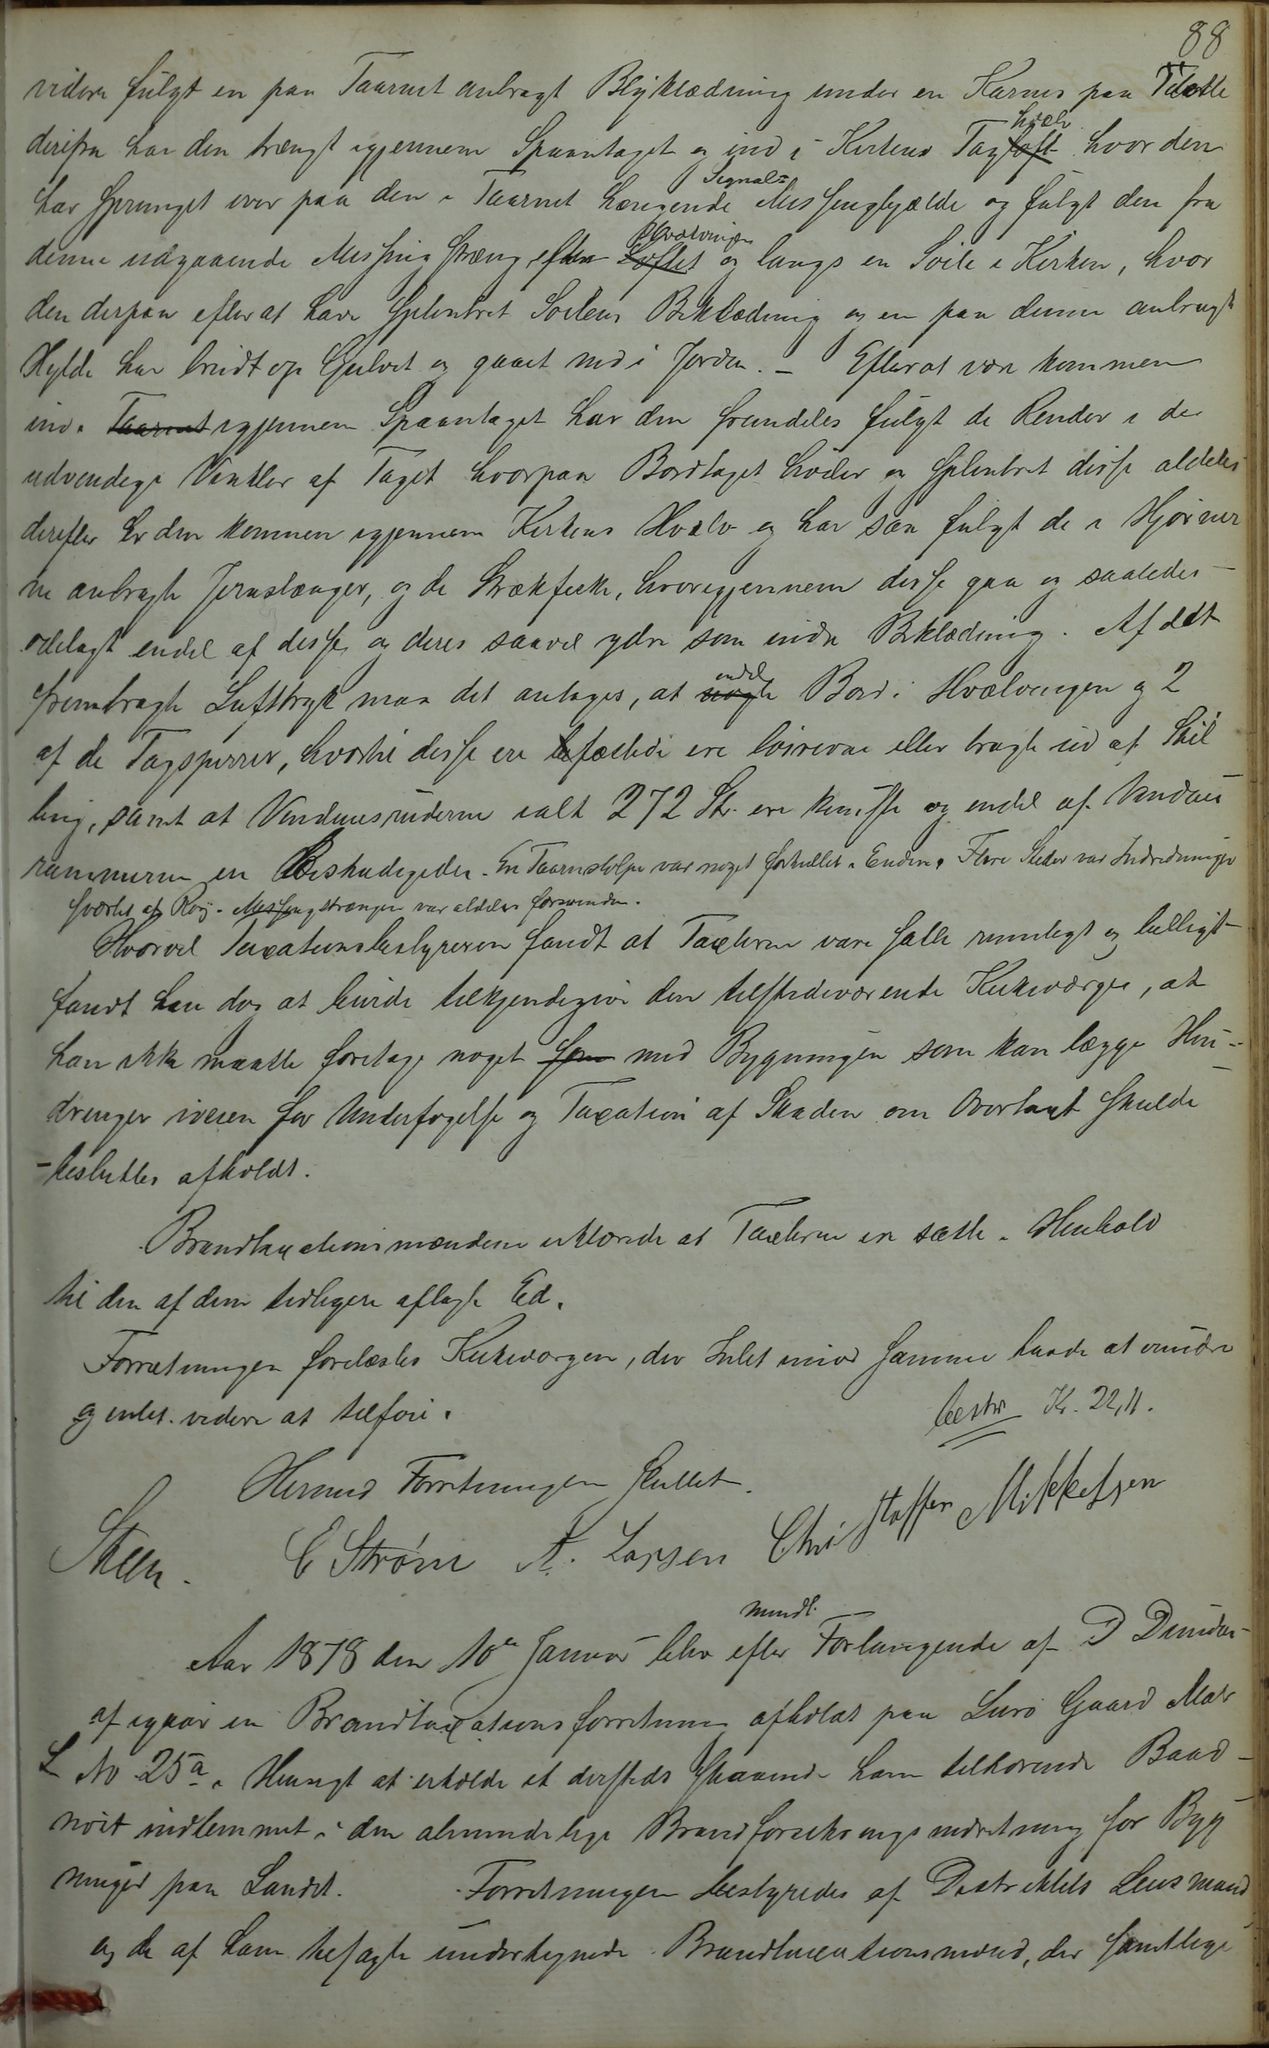 88
videre fulgt en paa Taarnet anbragt Blyklædning under en Karnis paa
derifra har den trængt igjennem Spaantaget og ind i Kirkens Taghvælv hvor den
har sprunget over paa den i Taarnet hængende Signal- Messingbjælde og fulgt den fra
denne udgaaende Messingstræng efter Hvælvingen og langs en Søile i Kirken, hvor
den derpaa efterat have splintret Søilens Beklædning og en paa denne anbragt
Hylde har brudt op Gulvet og gaaet ned i Jorden. – Efterat være kommen
ind igjennem Spaantaget har den fremdeles fulgt de Render i de
udvendige Vinkler af Taget hvorpaa Bordtaget hviler og splintret disse aldeles
derefter er den kommen igjennem Kirkens Hvælv og har saa fulgt de i Hjørner
ne anbragte Jernstænger, og de Strækfisk, hvorigjennem disse gaa og saaledes
ødelagt endel af disse og deres saavel ydre som indre Beklædning. Af det
frembragte Lufttryk maa det antages, at endel Bord i Hvælvingen og 2
af de Tagsperrer, hvortil disse ere befæstede ere løsrevne eller bragte ud af Stil
ling, samt at Vinduesruderne ialt 272 Stk. ere knuste og endel af Vindus
rammerne ere beskadigede. En Taarnstolpe var noget forkullet i Enden. Flere Steder var Indredningen
sværtet af Røg. Messingstrængen var aldeles forsvunden.
Hvorvel Taxationsbestyreren fandt at Taxterne vare satte rimeligt og billigt
fandt han dog at burde tilkjendegive den tilstedeværende Kirkeværge, at
han ikke maatte foretage noget med Bygningen som kan lægge Hin-
dringer iveien for Undersøgelse og Taxation af Skaden om Overtaxt skulde
besluttes afholdt.
Brandtaxationsmændene erklærede at Taxterne er satte i Henhold
til den af dem tidligere aflagte Ed.
Forretningen forelæstes Kirkeværgen, der Intet imod samme havde at erindre
og intet videre at tilføie.
Kr. 22,11.
Hermed Forretningen sluttet.
Steen. C Strøm A. Larsen Christoffer Mikkelsen
Aar 1878 den 10de Januar blev efter mundl. Forlangende af D Dundas
af igaar en Brandtaxationsforretning afholdt paa Lurø Gaard Matr
L No 25a i Hensigt at erholde et dersteds staaende ham tilhørende Baad-
nøst indlemmet i den almindelige Brandforsikringsindretning for Byg
ninger paa Landet. Forretningen bestyredes af Distriktets Lensmand
og de af ham tilsagte undertegnede Brandtaxationsmænd, der samtlige